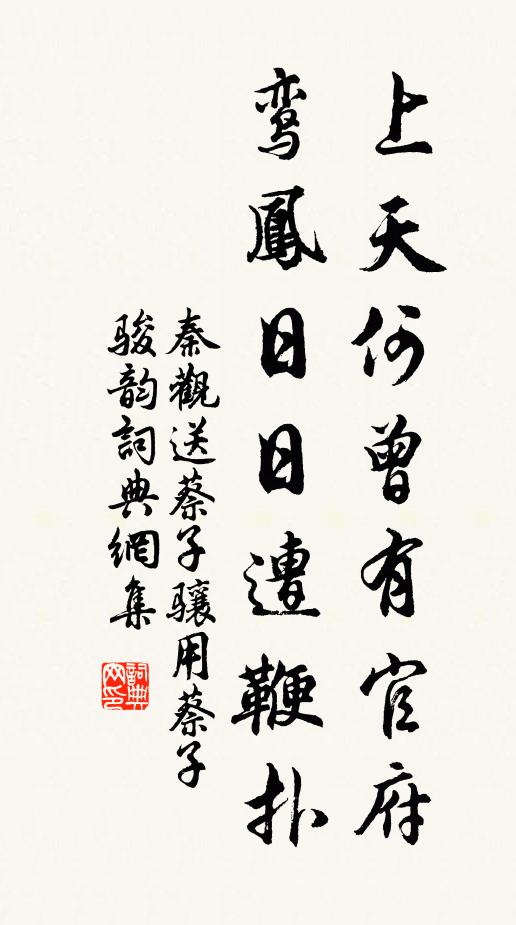 上天何曾有官府
鸾鳳日日遭鞭扑
秦觀送蔡子驤用蔡子
骏韵詞典網集
詞典网印